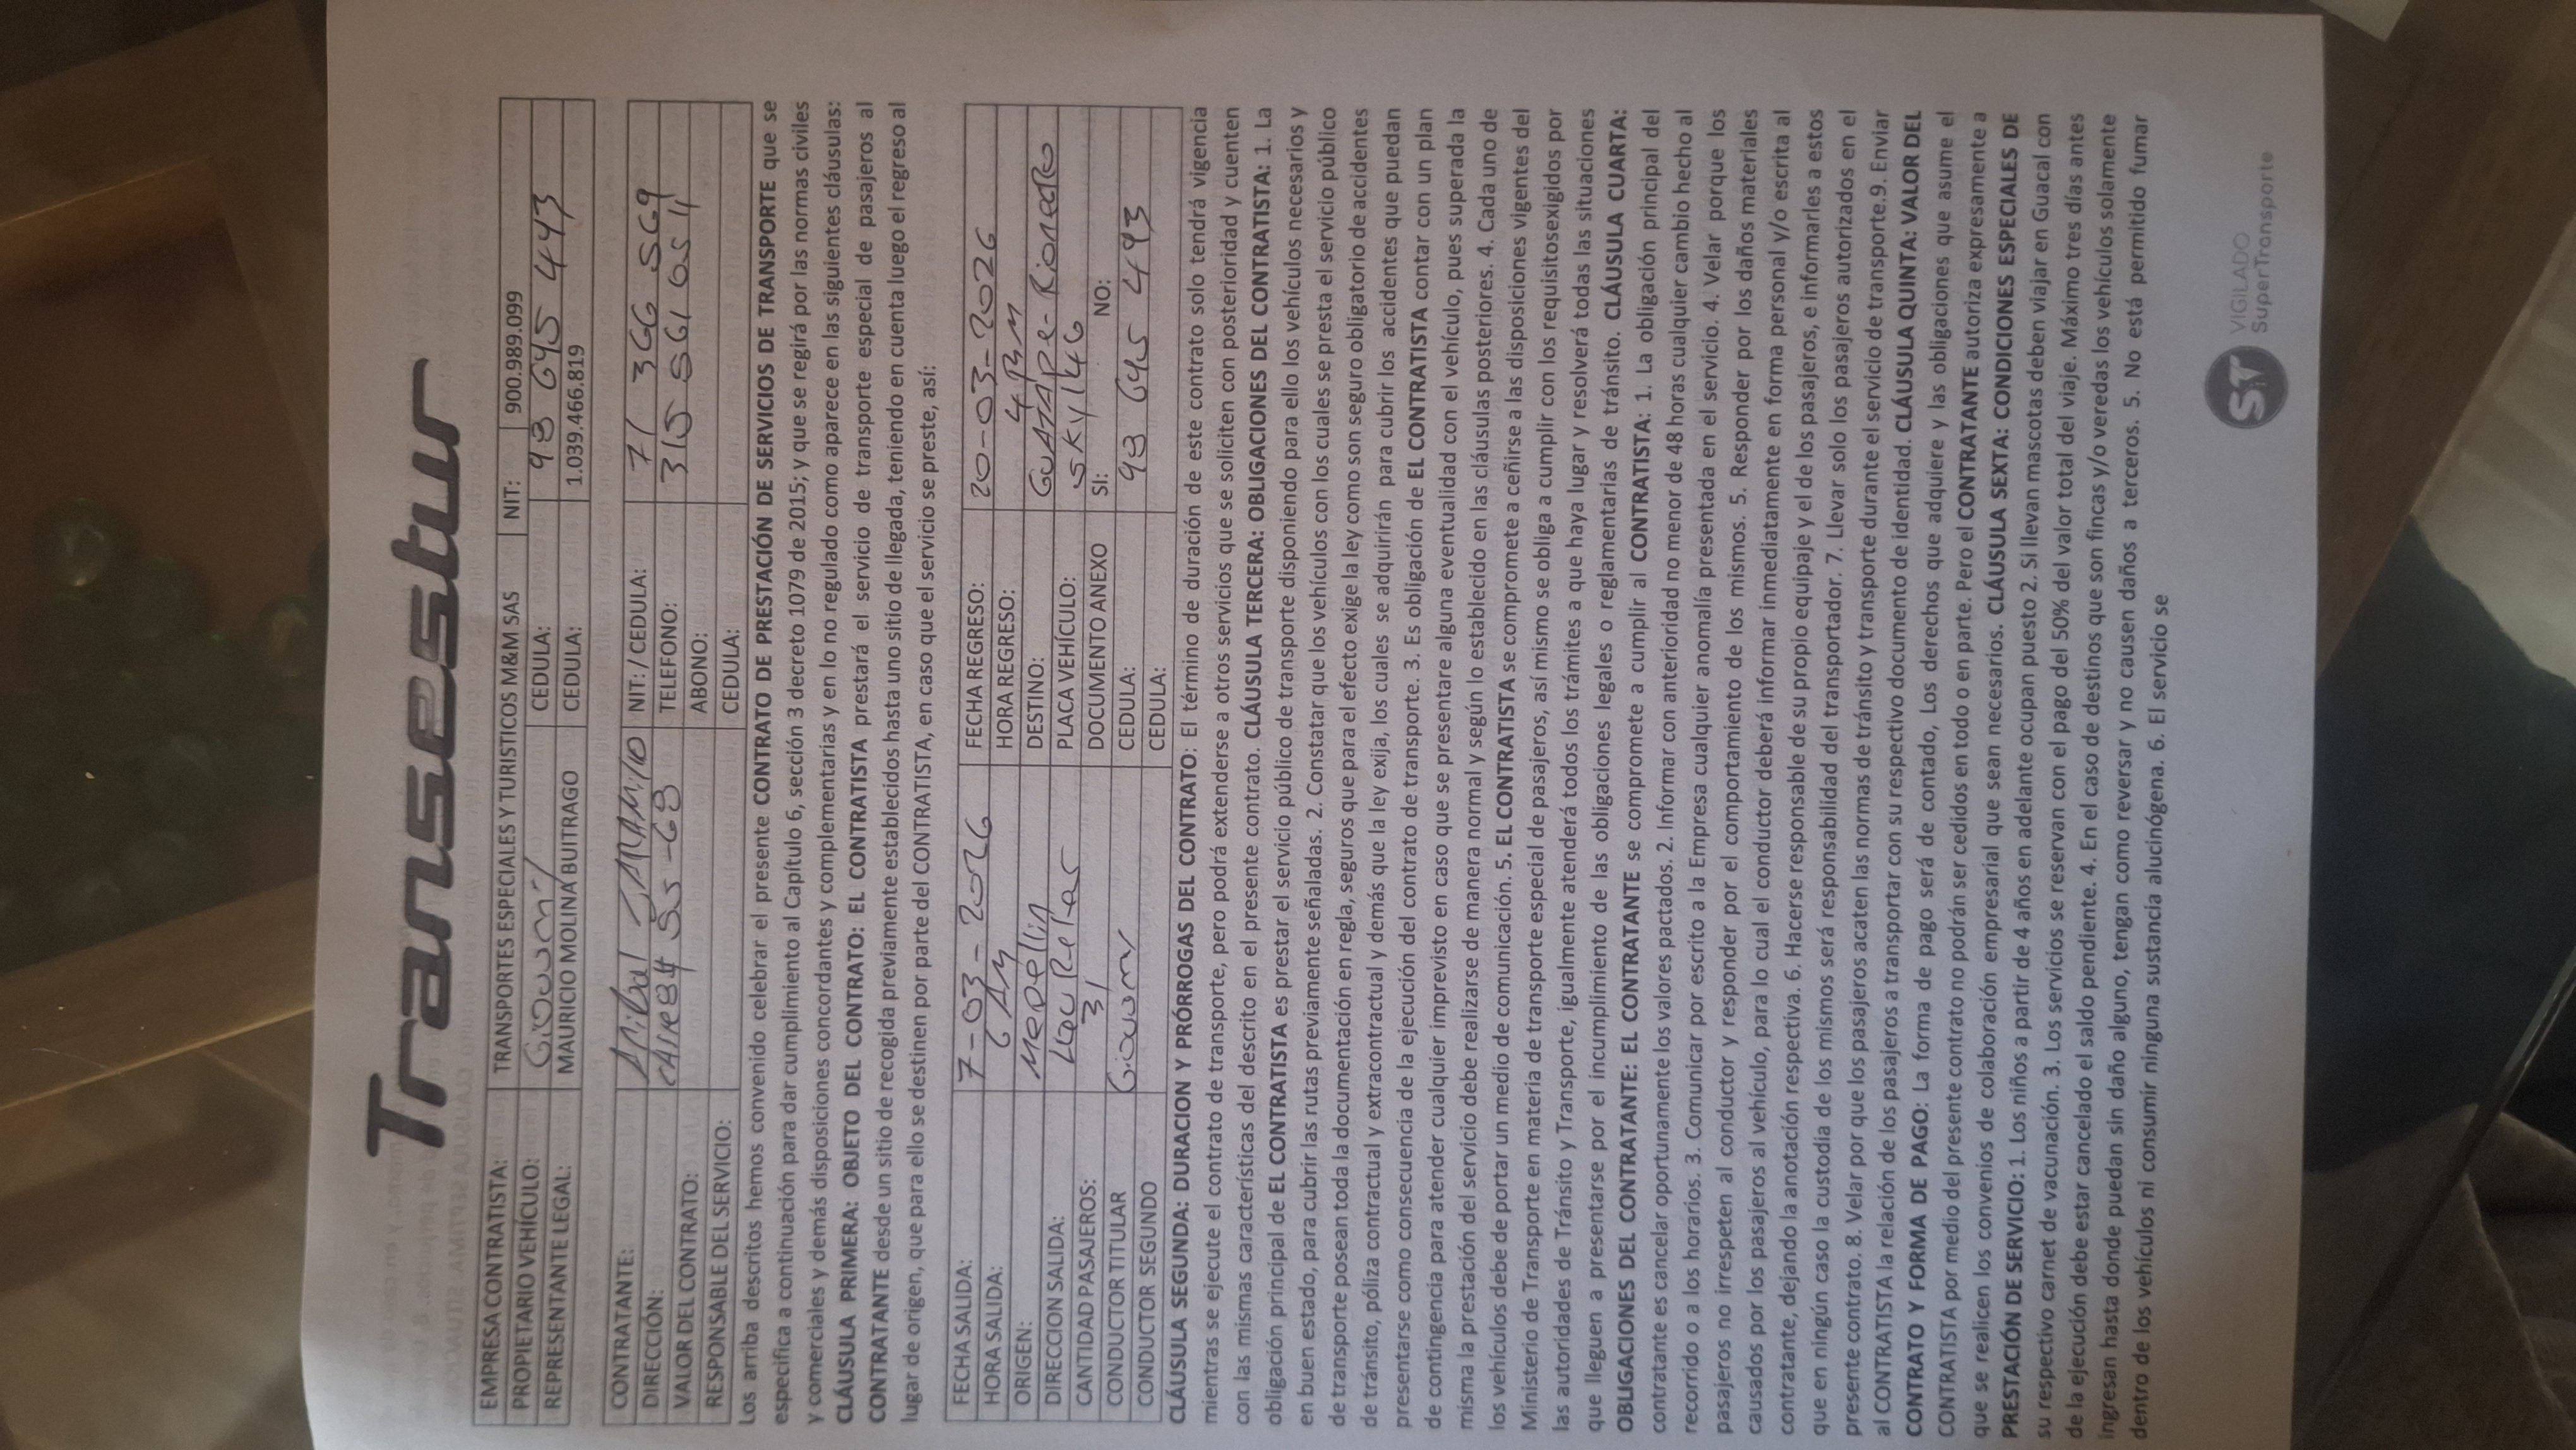 Transestur
EMPRESA CONTRATISTA: TRANSPORTES ESPECIALES Y TURISTICOS M&M SAS NIT: 900.989.099
PROPIETARIO VEHÍCULO: Giovanny CEDULA: 98 645 443
REPRESENTANTE LEGAL: MAURICIO MOLINA BUITRAGO CEDULA: 1.039.466.819
CONTRATANTE: Anibal JARAMillo NIT: / CEDULA: 71 366 569
DIRECCIÓN: 55-68 TELEFONO: 315 561 05 11
VALOR DEL CONTRATO: ABONO:
RESPONSABLE DEL SERVICIO: CEDULA:
Los arriba descritos hemos convenido celebrar el presente CONTRATO DE PRESTACIÓN DE SERVICIOS DE TRANSPORTE que se
especifica a continuación para dar cumplimiento al Capítulo 6, sección 3 decreto 1079 de 2015; y que se regirá por las normas civiles
y comerciales y demás disposiciones concordantes y complementarias y en lo no regulado como aparece en las siguientes cláusulas:
CLÁUSULA PRIMERA: OBJETO DEL CONTRATO: EL CONTRATISTA prestará el servicio de transporte especial de pasajeros al
CONTRATANTE desde un sitio de recogida previamente establecidos hasta uno sitio de llegada, teniendo en cuenta luego el regreso al
lugar de origen, que para ello se destinen por parte del CONTRATISTA, en caso que el servicio se preste, así:
FECHA SALIDA: 7-03-2026 FECHA REGRESO: 20-03-2026
HORA SALIDA: 6 AM HORA REGRESO: 4 PM
ORIGEN: Medellin DESTINO: GUATAPe-Rionedro
DIRECCION SALIDA: PLACA VEHÍCULO: SKY146
CANTIDAD PASAJEROS: 31 DOCUMENTO ANEXO SI: NO:
CONDUCTOR TITULAR Giovanny CEDULA: 98 645 493
CONDUCTOR SEGUNDO CEDULA:
CLÁUSULA SEGUNDA: DURACION Y PRÓRROGAS DEL CONTRATO: El término de duración de este contrato solo tendrá vigencia
mientras se ejecute el contrato de transporte, pero podrá extenderse a otros servicios que se soliciten con posterioridad y cuenten
con las mismas características del descrito en el presente contrato. CLÁUSULA TERCERA: OBLIGACIONES DEL CONTRATISTA: 1. La
obligación principal de EL CONTRATISTA es prestar el servicio público de transporte disponiendo para ello los vehículos necesarios y
en buen estado, para cubrir las rutas previamente señaladas. 2. Constatar que los vehículos con los cuales se presta el servicio público
de transporte posean toda la documentación en regla, seguros que para el efecto exige la ley como son seguro obligatorio de accidentes
de tránsito, póliza contractual y extracontractual y demás que la ley exija, los cuales se adquirirán para cubrir los accidentes que puedan
presentarse como consecuencia de la ejecución del contrato de transporte. 3. Es obligación de EL CONTRATISTA contar con un plan
de contingencia para atender cualquier imprevisto en caso que se presentare alguna eventualidad con el vehículo, pues superada la
misma la prestación del servicio debe realizarse de manera normal y según lo establecido en las cláusulas posteriores. 4. Cada uno de
los vehículos debe de portar un medio de comunicación. 5. EL CONTRATISTA se compromete a ceñirse a las disposiciones vigentes del
Ministerio de Transporte en materia de transporte especial de pasajeros, así mismo se obliga a cumplir con los requisitosexigidos por
las autoridades de Tránsito y Transporte, igualmente atenderá todos los trámites a que haya lugar y resolverá todas las situaciones
que lleguen a presentarse por el incumplimiento de las obligaciones legales o reglamentarias de tránsito. CLÁUSULA CUARTA:
OBLIGACIONES DEL CONTRATANTE: EL CONTRATANTE se compromete a cumplir al CONTRATISTA: 1. La obligación principal del
contratante es cancelar oportunamente los valores pactados. 2. Informar con anterioridad no menor de 48 horas cualquier cambio hecho al
recorrido o a los horarios. 3. Comunicar por escrito a la Empresa cualquier anomalía presentada en el servicio. 4. Velar porque los
pasajeros no irrespeten al conductor y responder por el comportamiento de los mismos. 5. Responder por los daños materiales
causados por los pasajeros al vehículo, para lo cual el conductor deberá informar inmediatamente en forma personal y/o escrita al
contratante, dejando la anotación respectiva. 6. Hacerse responsable de su propio equipaje y el de los pasajeros, e informarles a estos
que en ningún caso la custodia de los mismos será responsabilidad del transportador. 7. Llevar solo los pasajeros autorizados en el
presente contrato. 8. Velar por que los pasajeros acaten las normas de tránsito y transporte durante el servicio de transporte.9. Enviar
al CONTRATISTA la relación de los pasajeros a transportar con su respectivo documento de identidad. CLÁUSULA QUINTA: VALOR DEL
CONTRATO Y FORMA DE PAGO: La forma de pago será de contado, Los derechos que adquiere y las obligaciones que asume el
CONTRATISTA por medio del presente contrato no podrán ser cedidos en todo o en parte. Pero el CONTRATANTE autoriza expresamente a
que se realicen los convenios de colaboración empresarial que sean necesarios. CLÁUSULA SEXTA: CONDICIONES ESPECIALES DE
PRESTACIÓN DE SERVICIO: 1. Los niños a partir de 4 años en adelante ocupan puesto 2. Si llevan mascotas deben viajar en Guacal con
su respectivo carnet de vacunación. 3. Los servicios se reservan con el pago del 50% del valor total del viaje. Máximo tres días antes
de la ejecución debe estar cancelado el saldo pendiente. 4. En el caso de destinos que son fincas y/o veredas los vehículos solamente
ingresan hasta donde puedan sin daño alguno, tengan como reversar y no causen daños a terceros. 5. No está permitido fumar
dentro de los vehículos ni consumir ninguna sustancia alucinógena. 6. El servicio se
ST
VIGILADO
SuperTransporte